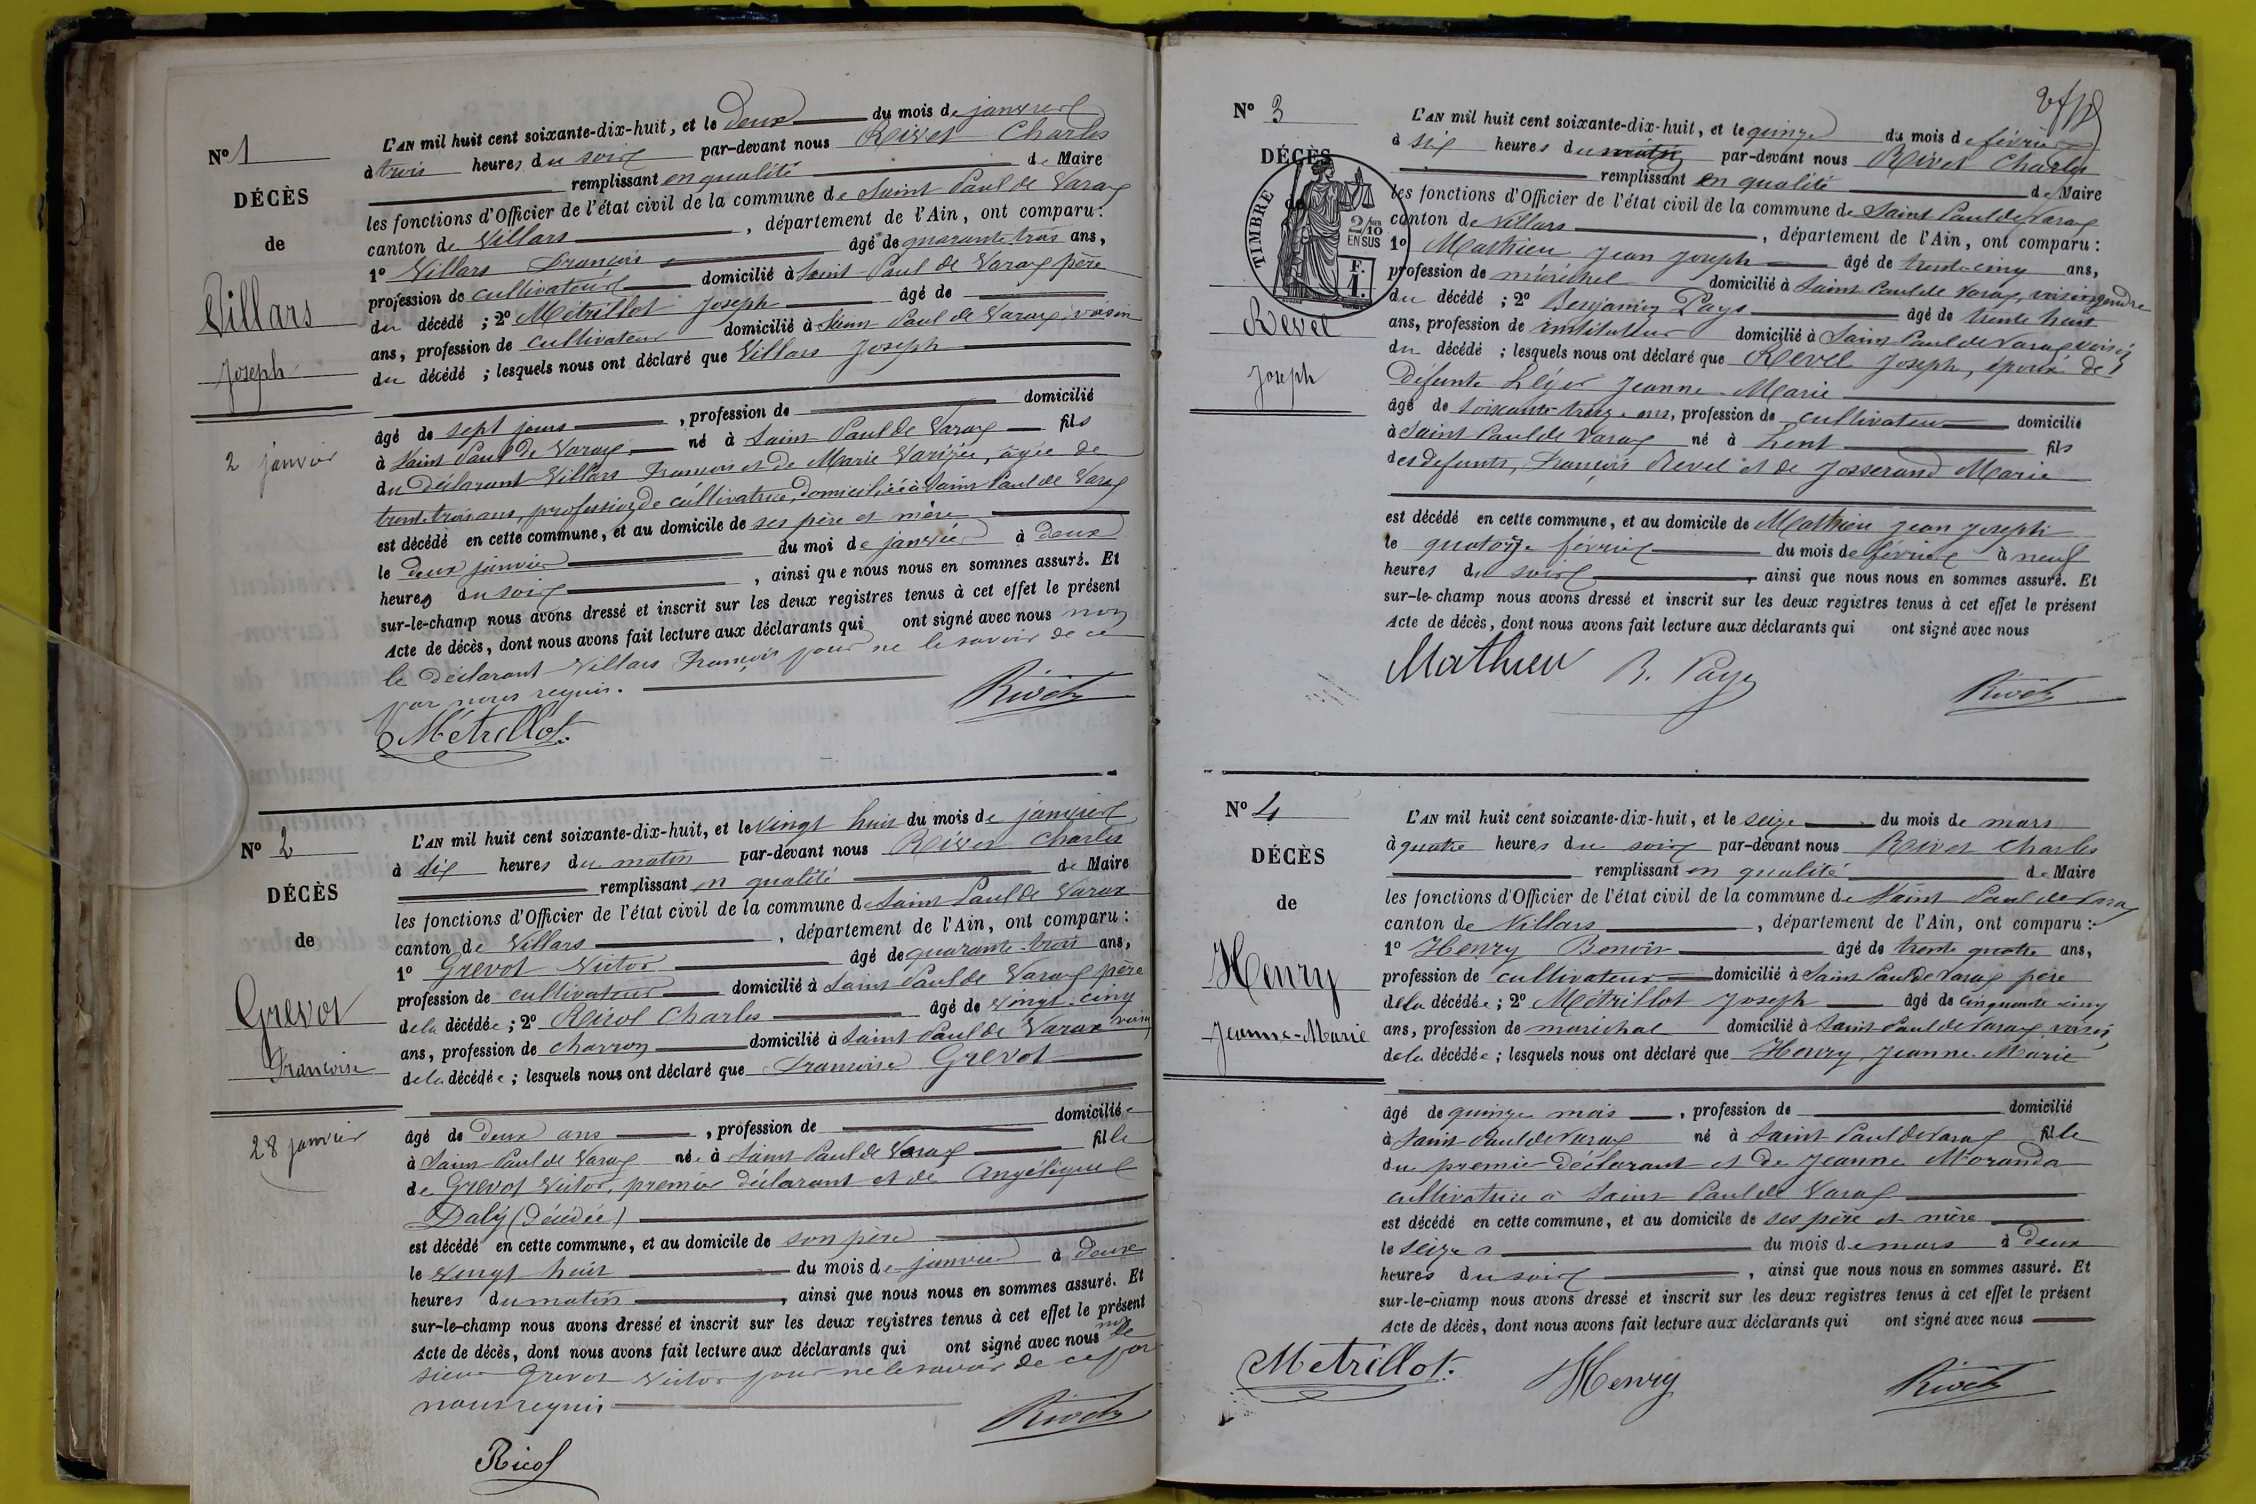 N° 1
DÉCÈS
de
Villars
Joseph
2 janvier
L'AN mil huit cent soixante-dix-huit, et le deux du mois de janvier
à trois heures du soir par-devant nous Rivet Charles
remplissant en qualité de Maire
les fonctions d'Officier de l'état civil de la commune de Saint Paul de Varax
canton de Villars, département de l'Ain, ont comparu:
1° Villars François âgé de quarante trois ans,
profession de cultivateur domicilié à Saint Paul de Varax père
du décédé; 2° Métrillot Joseph âgé de
ans, profession de cultivateur domicilié à Saint Paul de Varax, voisin
du décédé; lesquels nous ont déclaré que Villars Joseph
âgé de sept jours, profession de domicilié
à Saint Paul de Varax né à Saint Paul de Varax fils
du déclarant Villars François et de Marie, âgée de
trente trois ans, profession de cultivatrice, domiciliée à Saint Paul de Varax
est décédé en cette commune, et au domicile de ses père et mère
le deux janvier du moi de janvier à deux
heures du soir, ainsi que nous nous en sommes assuré. Et
sur-le-champ nous avons dressé et inscrit sur les deux registres tenus à cet effet le présent
Acte de décès, dont nous avons fait lecture aux déclarants qui ont signé avec nous non
le déclarant Villars François pour ne le savoir de ce
par nous requis.
Métrillot
Rivet
N° 2
DÉCÈS
de
Grevot
Françoise
28 janvier
L'AN mil huit cent soixante-dix-huit, et le vingt huit du mois de janvier
à dix heures du matin par-devant nous Rivet Charles
remplissant en qualité de Maire
les fonctions d'Officier de l'état civil de la commune de Saint Paul de Varax
canton de Villars, département de l'Ain, ont comparu:
1° Grevot Victor âgé de quarante trois ans,
profession de cultivateur domicilié à Saint Paul de Varax père
de la décédée; 2° Charles âgé de vingt-cinq
ans, profession de charron domicilié à Saint Paul de Varax voisin
de la décédée; lesquels nous ont déclaré que Françoise Grevot
âgé de deux ans, profession de domiciliée
à Saint Paul de Varax née à Saint Paul de Varax fille
de Grevot Victor, premier déclarant et de Angélique
Daly (décédée)
est décédé en cette commune, et au domicile de son père
le vingt huit du mois de janvier à deux
heures du matin, ainsi que nous nous en sommes assuré. Et
sur-le-champ nous avons dressé et inscrit sur les deux registres tenus à cet effet le présent
Acte de décès, dont nous avons fait lecture aux déclarants qui ont signé avec nous non le
sieur Grevot Victor pour ne le savoir de ce par
nous requis
Rivet
N° 3
DÉCÈS
de
Revel
Joseph
TIMBRE
2/10
EN SUS
F. 1.
L'AN mil huit cent soixante-dix-huit, et le quinze du mois de février
à six heures du matin par-devant nous Rivet Charles
remplissant en qualité de Maire
les fonctions d'Officier de l'état civil de la commune de Saint Paul de Varax
canton de Villars, département de l'Ain, ont comparu:
1° Mathieu Jean Joseph âgé de trente-cinq ans,
profession de maréchal domicilié à Saint Paul de Varax, voisin gendre
du décédé; 2° Benjamin Pays âgé de trente huit
ans, profession de instituteur domicilié à Saint Paul de Varax voisin
du décédé; lesquels nous ont déclaré que Revel Joseph, époux de
défunte Léger Jeanne Marie
âgé de soixante treize ans, profession de cultivateur domicilié
à Saint Paul de Varax né à Lent fils
des défunts, François Revel et de Josserand Marie
est décédé en cette commune, et au domicile de Mathieu Jean Joseph
le quatorze février du mois de février à neuf
heures du soir, ainsi que nous nous en sommes assuré. Et
sur-le-champ nous avons dressé et inscrit sur les deux registres tenus à cet effet le présent
Acte de décès, dont nous avons fait lecture aux déclarants qui ont signé avec nous
Mathieu
B. Pays
Rivet
N° 4
DÉCÈS
de
Henry
Jeanne-Marie
L'AN mil huit cent soixante-dix-huit, et le seize du mois de mars
à quatre heures du soir par-devant nous Rivet Charles
remplissant en qualité de Maire
les fonctions d'Officier de l'état civil de la commune de Saint Paul de Varax
canton de Villars, département de l'Ain, ont comparu:
1° Henry Benoit âgé de trente quatre ans,
profession de cultivateur domicilié à Saint Paul de Varax père
de la décédée; 2° Métrillot Joseph âgé de cinquante cinq
ans, profession de maréchal domicilié à Saint Paul de Varax voisin
de la décédée; lesquels nous ont déclaré que Henry Jeanne Marie
âgé de quinze mois, profession de domicilié
à Saint Paul de Varax né à Saint Paul de Varax fille
du premier déclarant et de Jeanne
cultivatrice à Saint Paul de Varax
est décédé en cette commune, et au domicile de ses père et mère
le seize du mois de mars à deux
heures du soir, ainsi que nous nous en sommes assuré. Et
sur-le-champ nous avons dressé et inscrit sur les deux registres tenus à cet effet le présent
Acte de décès, dont nous avons fait lecture aux déclarants qui ont signé avec nous
Metrillot
Henry
Rivet